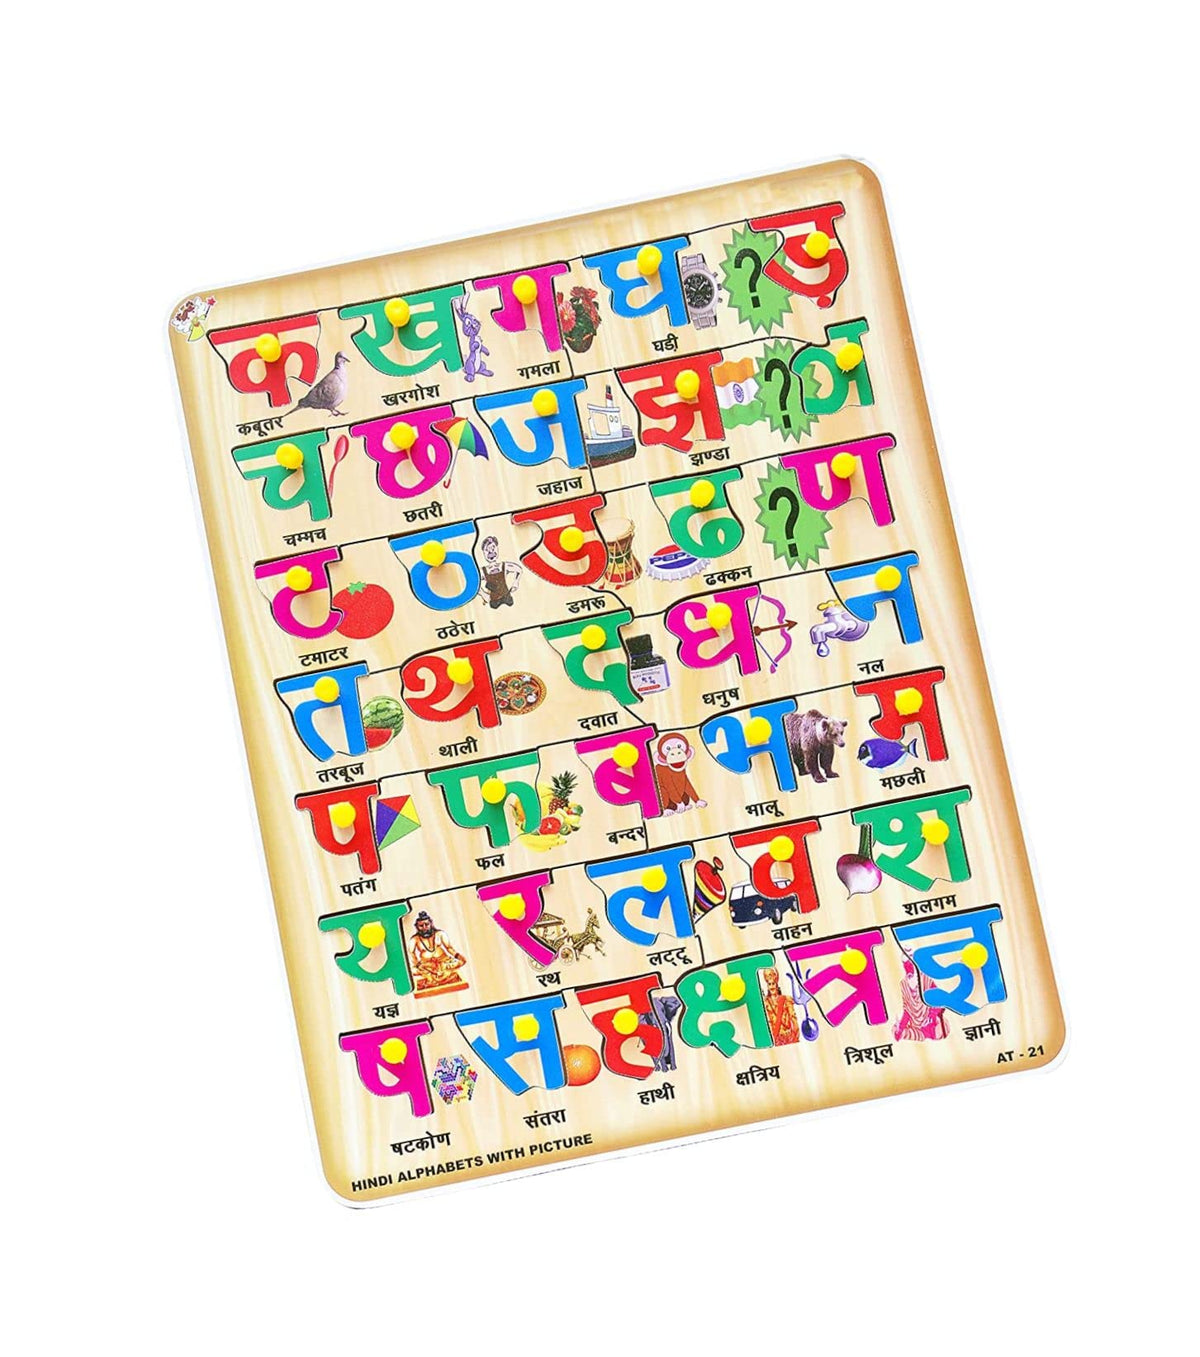 क ख ग घ ? ङ
कबूतर खरगोश गमला घडी
च छ ज झ ? ञ
चम्मच छतरी जहाज झण्डा
ट ठ ड ढ ? ण
टमाटर ठठेरा डमरू ढक्कन
PEPSI
त थ द ध न
तरबूज थाली दवात धनुष नल
प फ ब भ म
पतंग फल बन्दर भालू मछली
य र ल व श
यज्ञ रथ लट्टू वाहन शलगम
ष स ह क्ष त्र ज्ञ
षटकोण संतरा हाथी क्षत्रिय त्रिशूल ज्ञानी
HINDI ALPHABETS WITH PICTURE
AT - 21